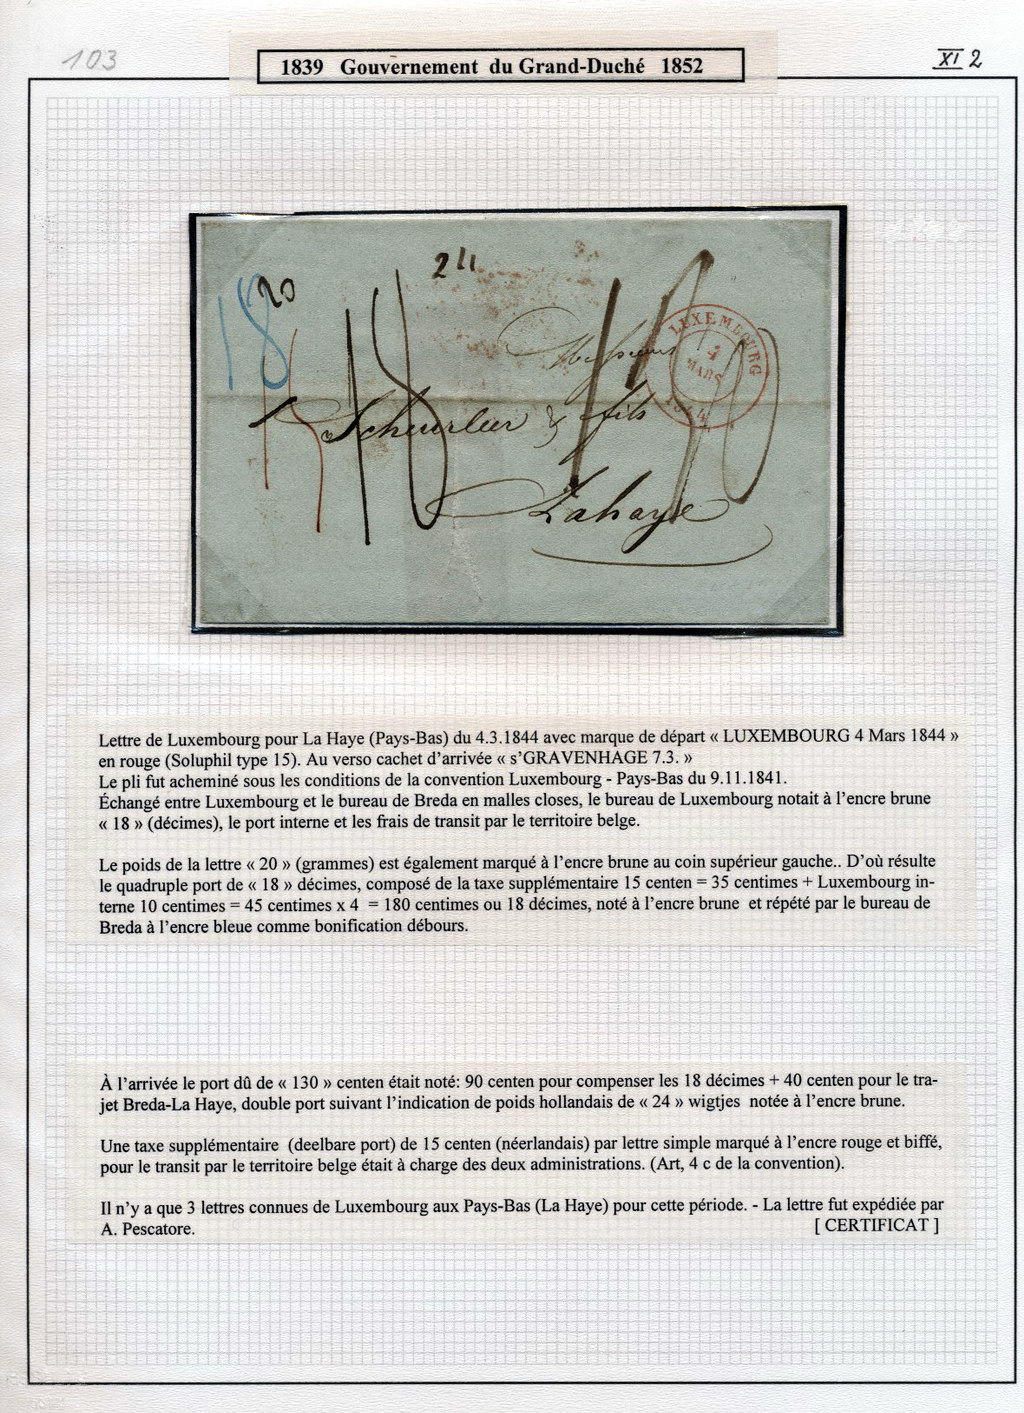 103
XI 2
1839 Gouvernement du Grand-Duché 1852
24
20
18
15
18
130
LUXEMBOURG
4
MARS
1844
Messieurs
Scheurleer & fils
Lahaye
Lettre de Luxembourg pour La Haye (Pays-Bas) du 4.3.1844 avec marque de départ « LUXEMBOURG 4 Mars 1844 »
en rouge (Soluphil type 15). Au verso cachet d'arrivée « s'GRAVENHAGE 7.3. »
Le pli fut acheminé sous les conditions de la convention Luxembourg - Pays-Bas du 9.11.1841.
Échangé entre Luxembourg et le bureau de Breda en malles closes, le bureau de Luxembourg notait à l'encre brune
« 18 » (décimes), le port interne et les frais de transit par le territoire belge.
Le poids de la lettre « 20 » (grammes) est également marqué à l'encre brune au coin supérieur gauche.. D'où résulte
le quadruple port de « 18 » décimes, composé de la taxe supplémentaire 15 centen = 35 centimes + Luxembourg in-
terne 10 centimes = 45 centimes x 4 = 180 centimes ou 18 décimes, noté à l'encre brune et répété par le bureau de
Breda à l'encre bleue comme bonification débours.
À l'arrivée le port dû de « 130 » centen était noté: 90 centen pour compenser les 18 décimes + 40 centen pour le tra-
jet Breda-La Haye, double port suivant l'indication de poids hollandais de « 24 » wigtjes notée à l'encre brune.
Une taxe supplémentaire (deelbare port) de 15 centen (néerlandais) par lettre simple marqué à l'encre rouge et biffé,
pour le transit par le territoire belge était à charge des deux administrations. (Art, 4 c de la convention).
Il n'y a que 3 lettres connues de Luxembourg aux Pays-Bas (La Haye) pour cette période. - La lettre fut expédiée par
A. Pescatore. [ CERTIFICAT ]